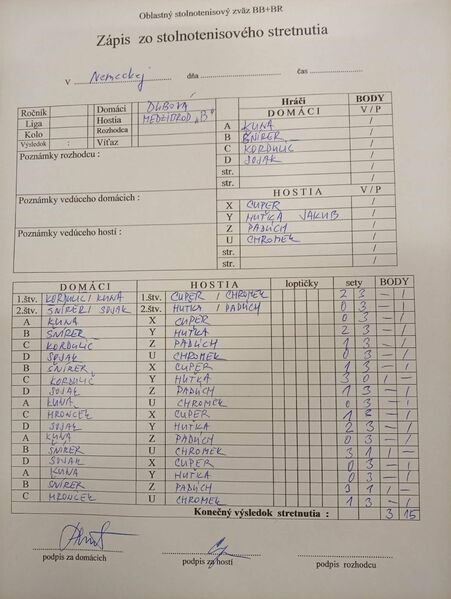 Oblastný stolnotenisový zväz BB+BR
Zápis zo stolnotenisového stretnutia
V Nemeckej dňa čas
Ročník Domáci DUBOVÁ
Liga Hostia MEDZIBROD „B"
Kolo Rozhodca
Výsledok : : Víťaz
Hráči BODY
DOMÁCI V / P
A KUNA /
B ŠNIRER /
C KORDULIČ /
D SOJAK /
str. /
str. /
Poznámky rozhodcu :
HOSTIA V / P
X CUPER /
Y HUTKA JAKUB /
Z PADÚCH /
U CHROMEK /
str. /
str. /
Poznámky vedúceho domácich :
Poznámky vedúceho hostí :
DOMÁCI HOSTIA loptičky sety BODY
1.štv. KORDULIČ / KUNA 1.štv. CUPER / CHROMEK 2 3 – 1
2.štv. ŠNIRER / SOJAK 2.štv. HUTKA / PADÚCH 0 3 – 1
A KUNA X CUPER 0 3 – 1
B ŠNIRER Y HUTKA 2 3 – 1
C KORDULIČ Z PADÚCH 1 3 – 1
D SOJAK U CHROMEK 0 3 – 1
B ŠNIRER X CUPER 1 3 – 1
C KORDULIČ Y HUTKA 3 0 1 –
D SOJAK Z PADÚCH 1 3 – 1
A KUNA U CHROMEK 0 3 – 1
C HRONCEK X CUPER 1 3 – 1
D SOJAK Y HUTKA 2 3 – 1
A KUNA Z PADÚCH 0 3 – 1
B ŠNIRER U CHROMEK 3 1 1 –
D SOJAK X CUPER 0 3 – 1
A KUNA Y HUTKA 0 3 – 1
B ŠNIRER Z PADÚCH 3 1 1 –
C HRONCEK U CHROMEK 1 3 – 1
Konečný výsledok stretnutia : 3 15
podpis za domácich podpis za hostí podpis rozhodcu